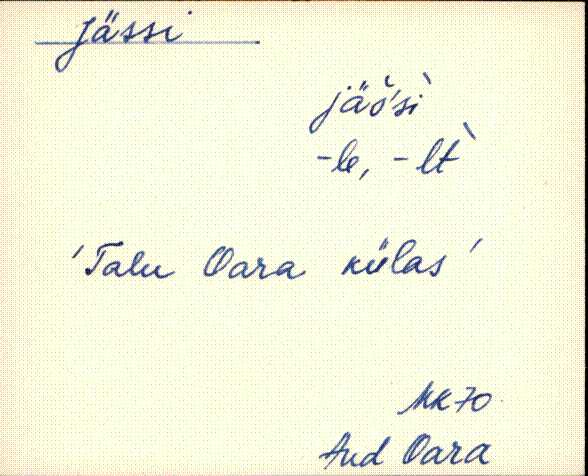 Jässi
jäśsì
-le, -lt̀
'Talu Oara külas'
MK 70
Aud Oara